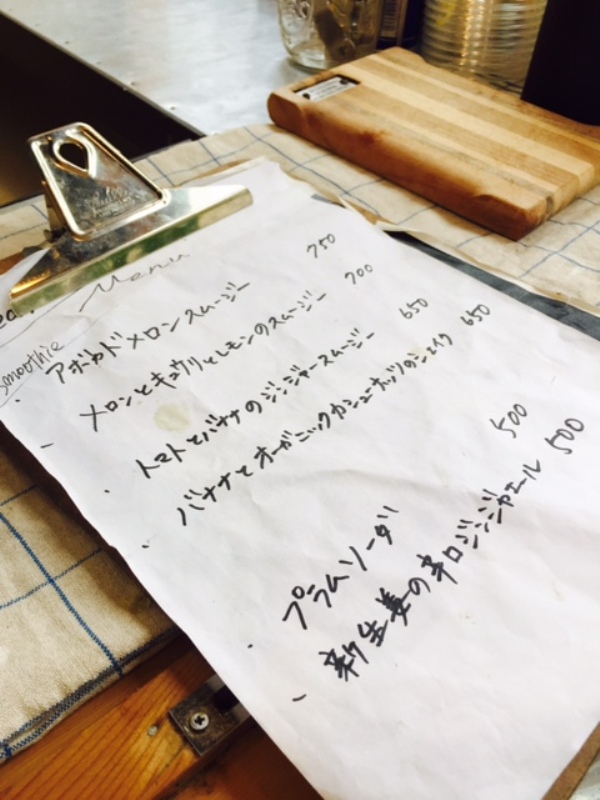 Menu
smoothie
・アボカドメロンスムージー 750
・メロンとキュウリとレモンのスムージー 700
・トマトとバナナのジンジャースムージー 650
・バナナとオーガニックカシューナッツのシェイク 650
・プラムソーダ 500
・新生姜の辛口ジンジャエール 500